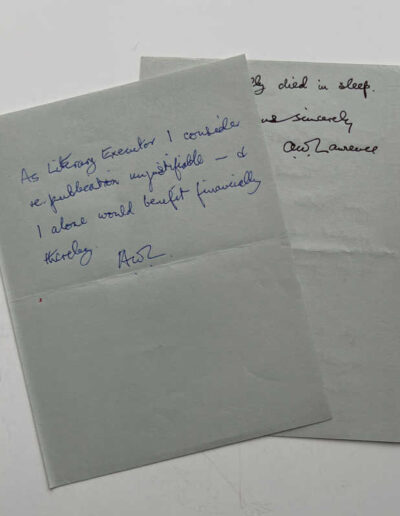 As Literary Executor I consider
re-publication unjustifiable — &
I alone would benefit financially
thereby A.W.L.
died in sleep.
sincerely
A.W. Lawrence